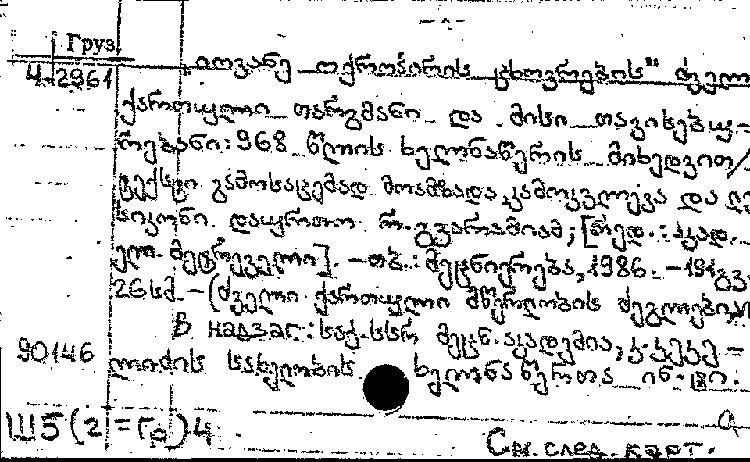 Груз.
4.2961 „იოვანე ოქროპირის ცხოვრების" ძველ
ქართული თარგმანი და მისი თავისებუ-
რებანი: 968 წლის ხელნაწერის მიხედვით/
ტექსტი გამოსაცემად მოამზადა, გამოკვლევა და
სიკონი დაურთო რ. გვარამიამ; [რედ.: აკად.
ელ. მეტრეველი]. – თბ.: მეცნიერება, 1986. – 191გვ
26სმ. – (ძველი ქართული მწერლობის ძეგლები;
В надзаг.: საქ. სსრ მეცნ. აკადემია, კ. კეკე-
90146 ლიძის სახელობის ხელნაწერთა ინ-ტი.
Ш5(2=Гр)4
См. след. карт.